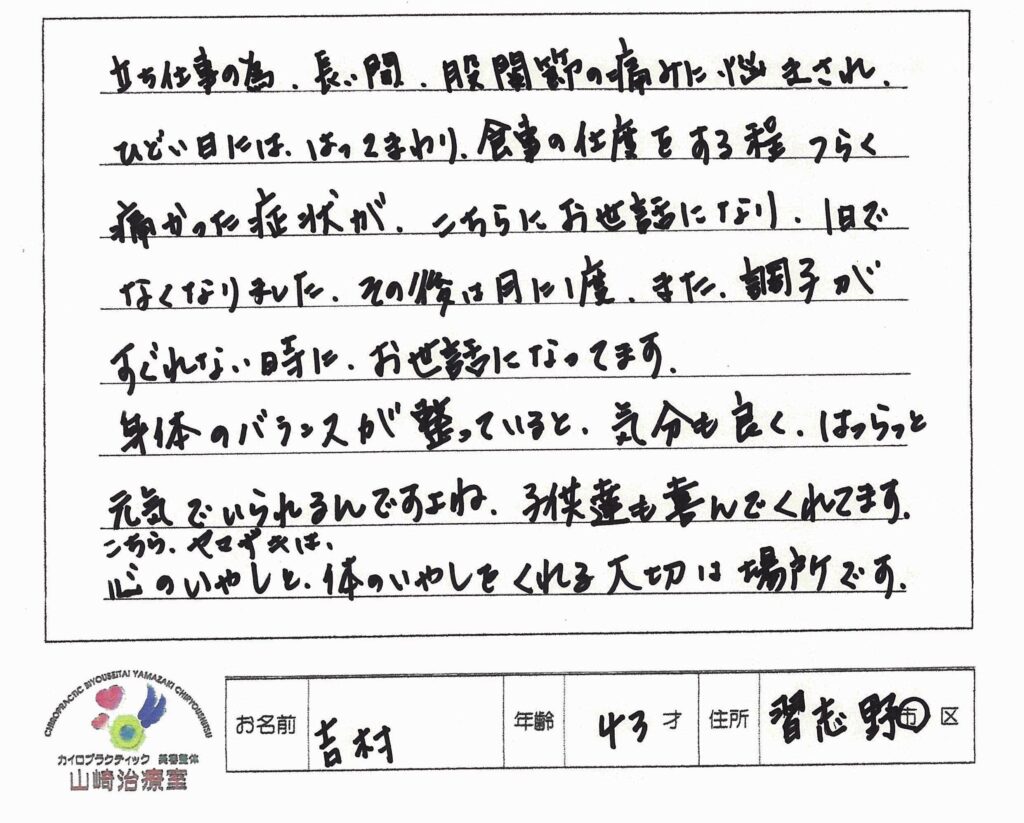 立ち仕事の為、長い間、股関節の痛みに悩まされ、
ひどい日には、はってまわり、食事の仕度をする程つらく
痛かった症状が、こちらにお世話になり、1日で
なくなりました。その後は月に1度、また、調子が
すぐれない時に、お世話になってます。
身体のバランスが整っていると、気分も良く、はつらつと
元気でいられるんですよね。子供達も喜んでくれてます。
こちら、ヤマザキは、
心のいやしと、体のいやしをくれる大切は場所です。
CHIROPRACTIC BIYOUSEITAI YAMAZAKI CHIRYOUSHITSU
カイロプラクティック 美容整体
山崎治療室
お名前 吉村 年齢 43才 住所 習志野市区